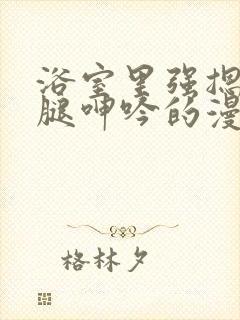 浴室里强揌
腿呻吟的漫
格林夕